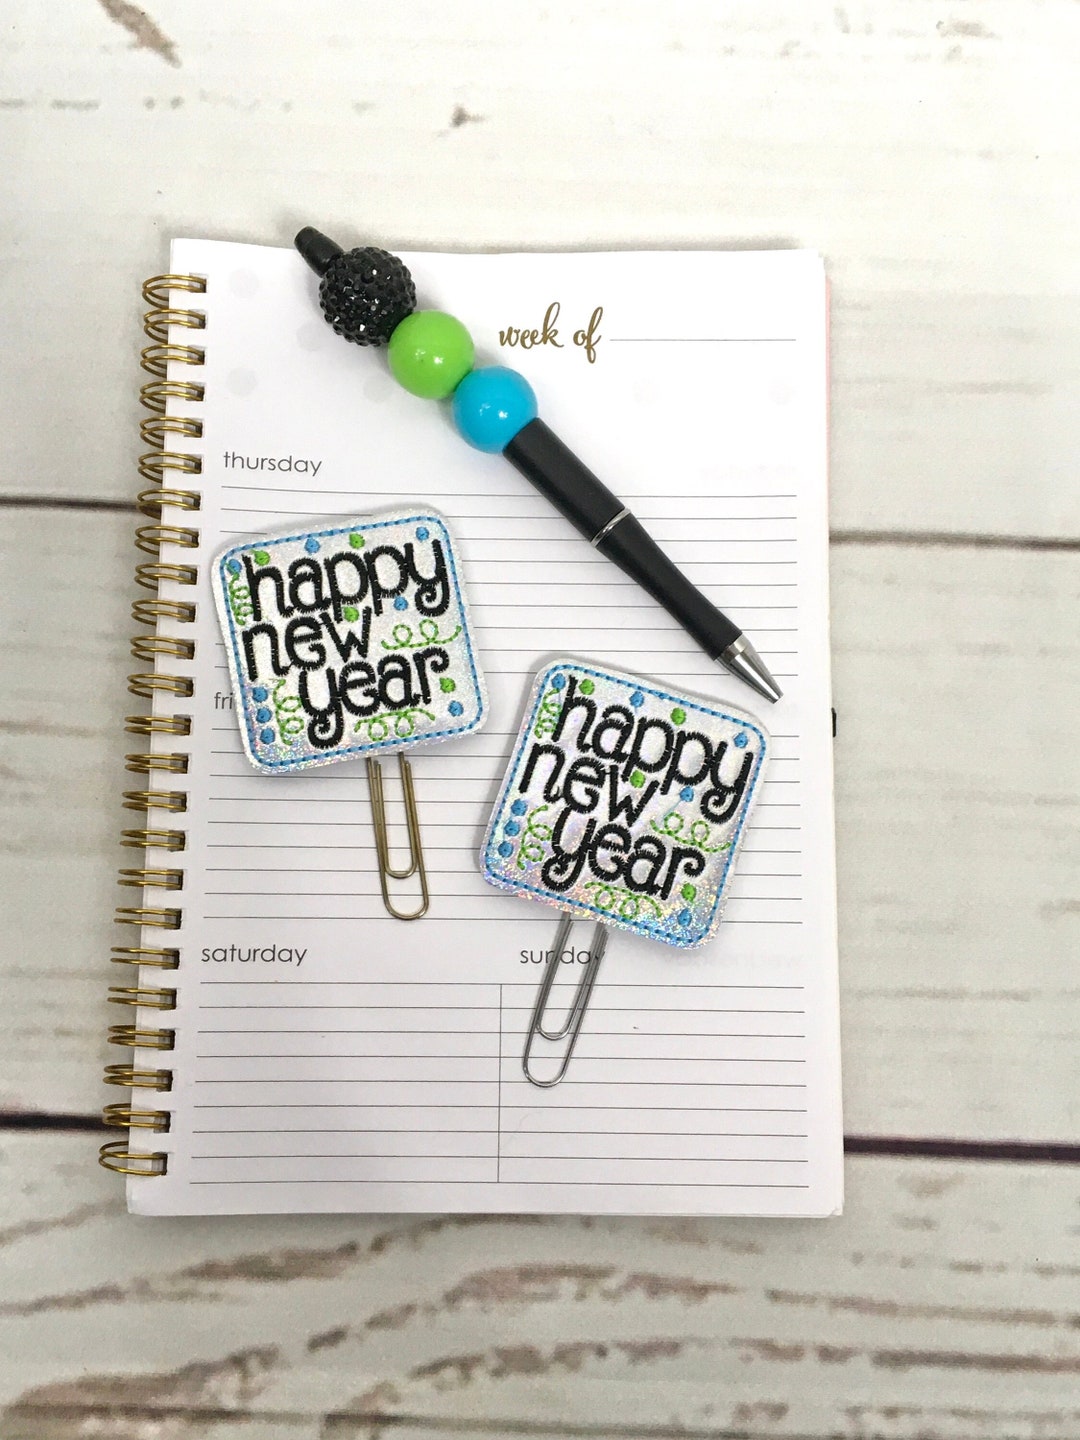 week of
thursday
happy
new
year
fri
happy
new
year
saturday
sunday